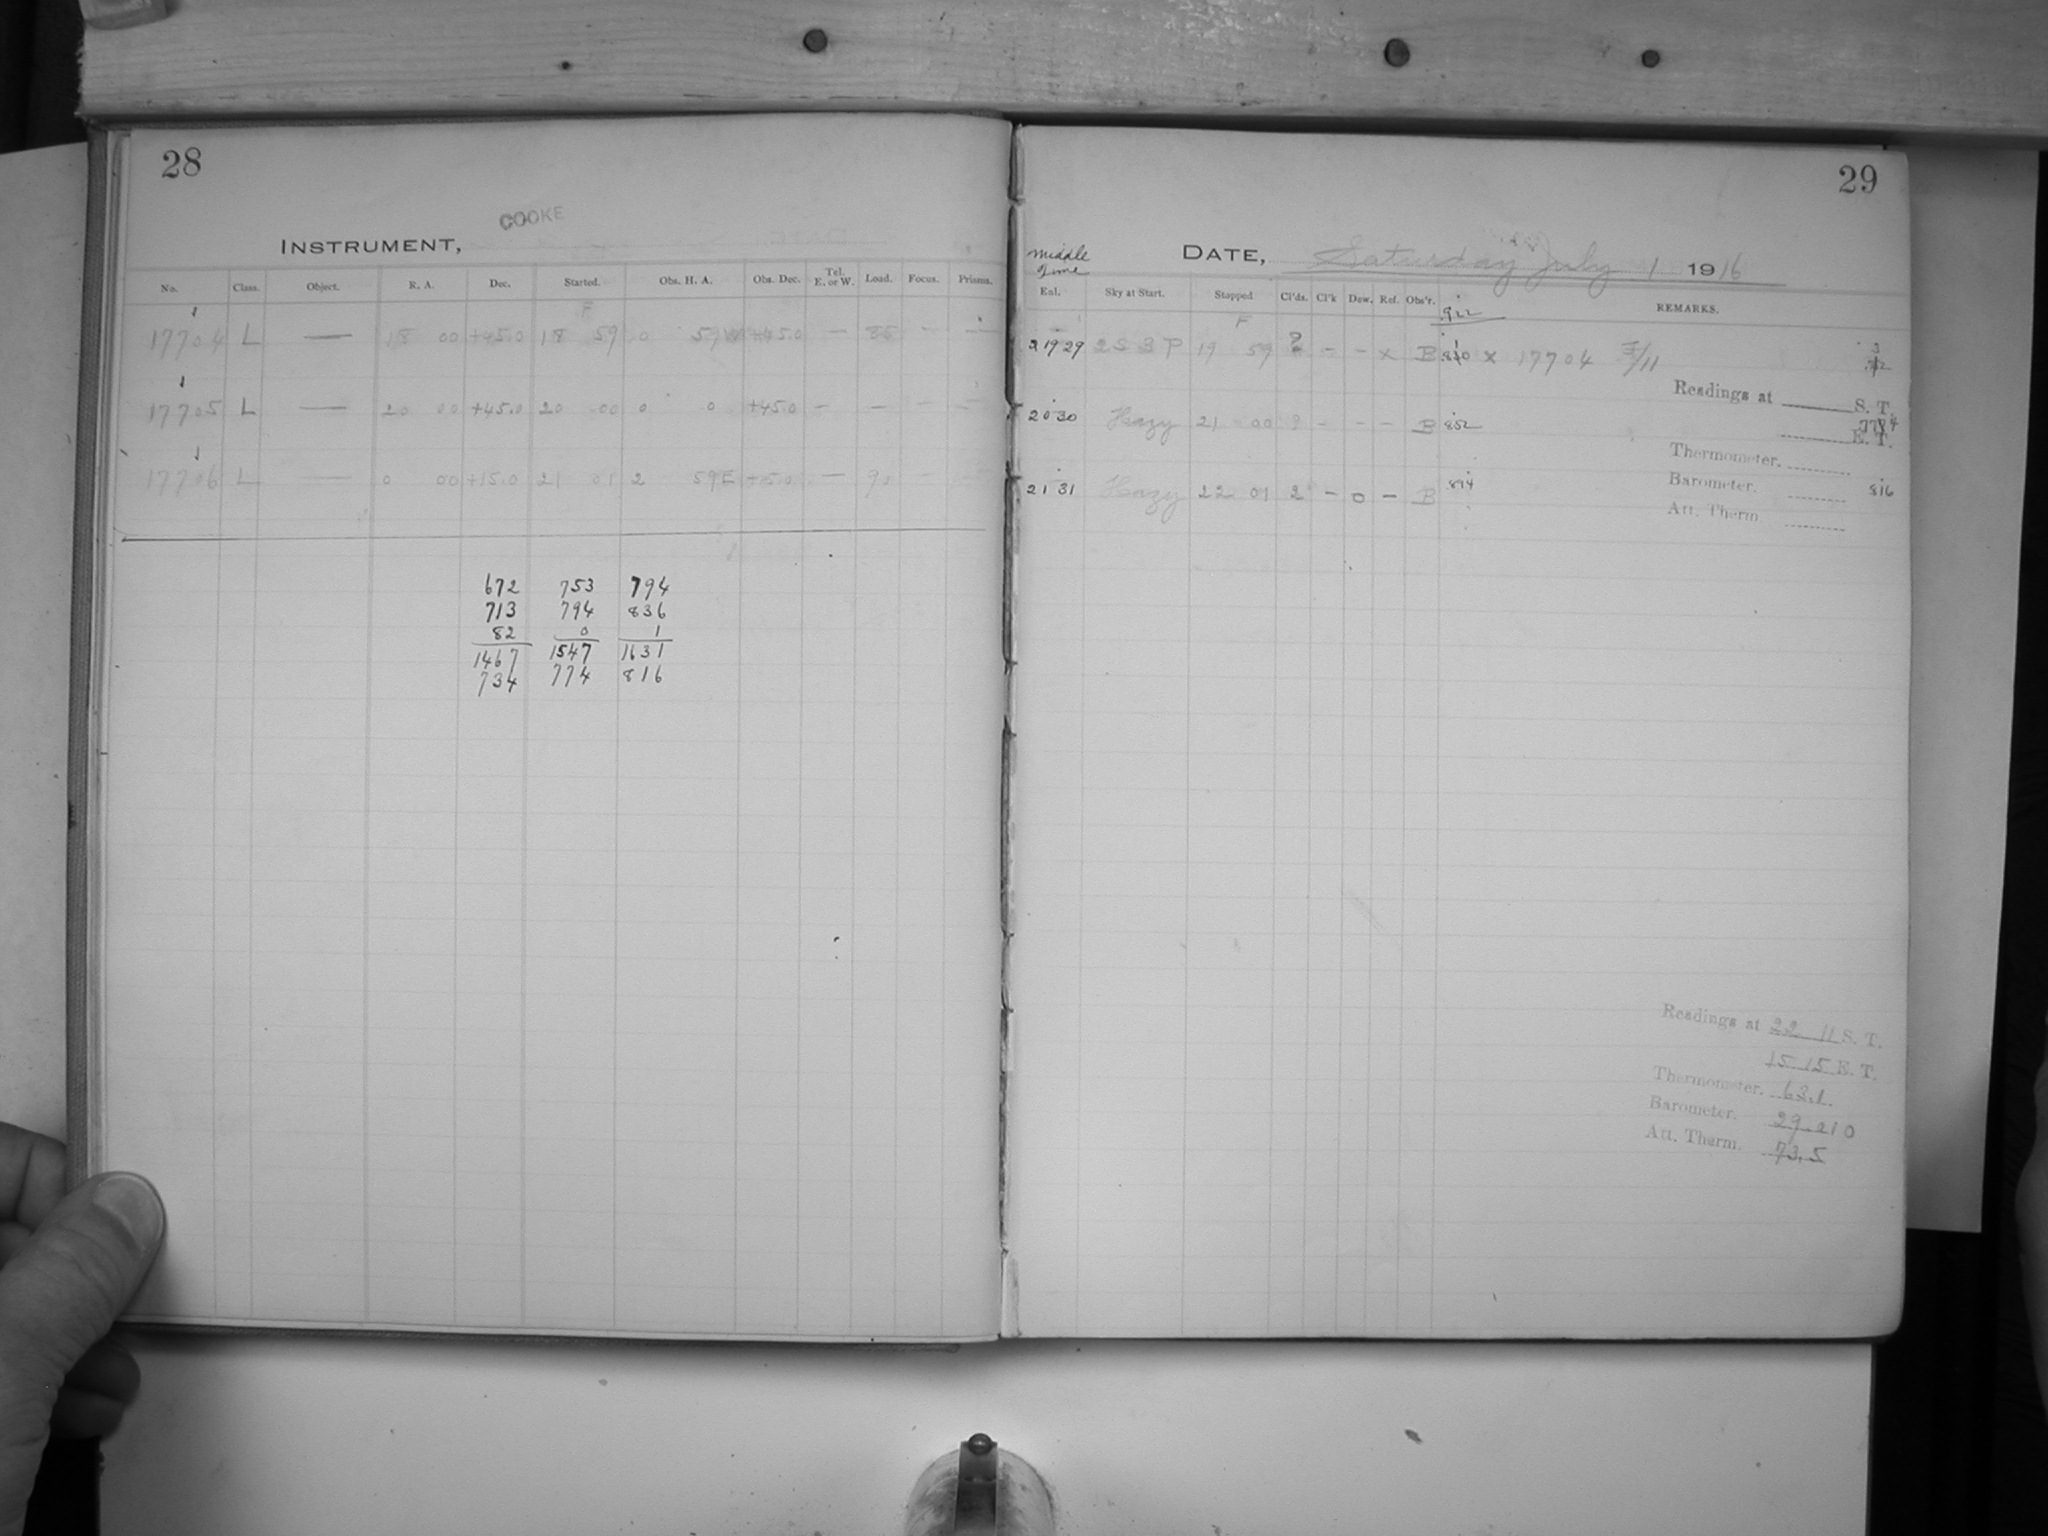 28
COOKE
INSTRUMENT,
No. Class. Object. R. A. Dec. Started. Obs. H. A. Obs. Dec. Tel. E. or W. Load. Focus. Prisms.
F
17704 L — 18 00 +45.0 18 59 0 59W +45.0 — 85 — —
17705 L — 20 00 +45.0 20 00 0 0 +45.0 — — — —
17706 L — 0 00 +15.0 21 01 2 59E +15.0 — 90 — —
672 753 794
713 794 836
82 0 1
1467 1547 1631
734 774 816
29
DATE, Saturday July 1 1916
Middle Time
Eal. Sky at Start. Stopped Cl'ds. Cl'k Dew. Ref. Obs'r. REMARKS.
922
F
19 29 2S 3 P 19 59 ? – – x B x 17704
Readings at S. T.
E. T.
20 30 Hazy 21 00 – – – B 852
774
Thermometer.
Barometer. 816
Att. Therm.
21 31 Hazy 22 01 2 – 0 – B 894
Readings at 22 11 S. T.
15 15 E. T.
Thermometer. 63.1.
Barometer. 29.210
Att. Therm. 73.5